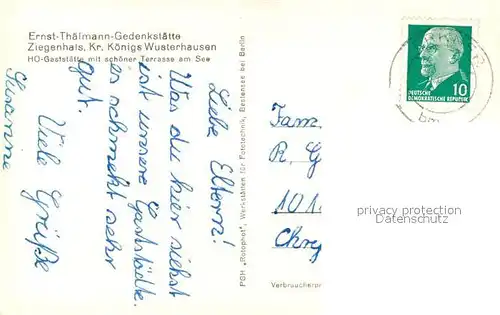 Ernst-Thälmann-Gedenkstätte
Ziegenhals, Kr. Königs Wusterhausen
HO-Gaststätte mit schöner Terrasse am See
Liebe Eltern!
Was du hier siehst
ist unsere Gaststädte.
es schmekt sehr
gut.
Viele Grüße
Susanne
PGH „Rotophot", Werkstätten für Fototechnik, Bestensee bei Berlin
10
DEUTSCHE
DEMOKRATISCHE REPUBLIK
Fam.
R. G
101
Chry
privacy protection
Datenschutz
Verbraucherpr